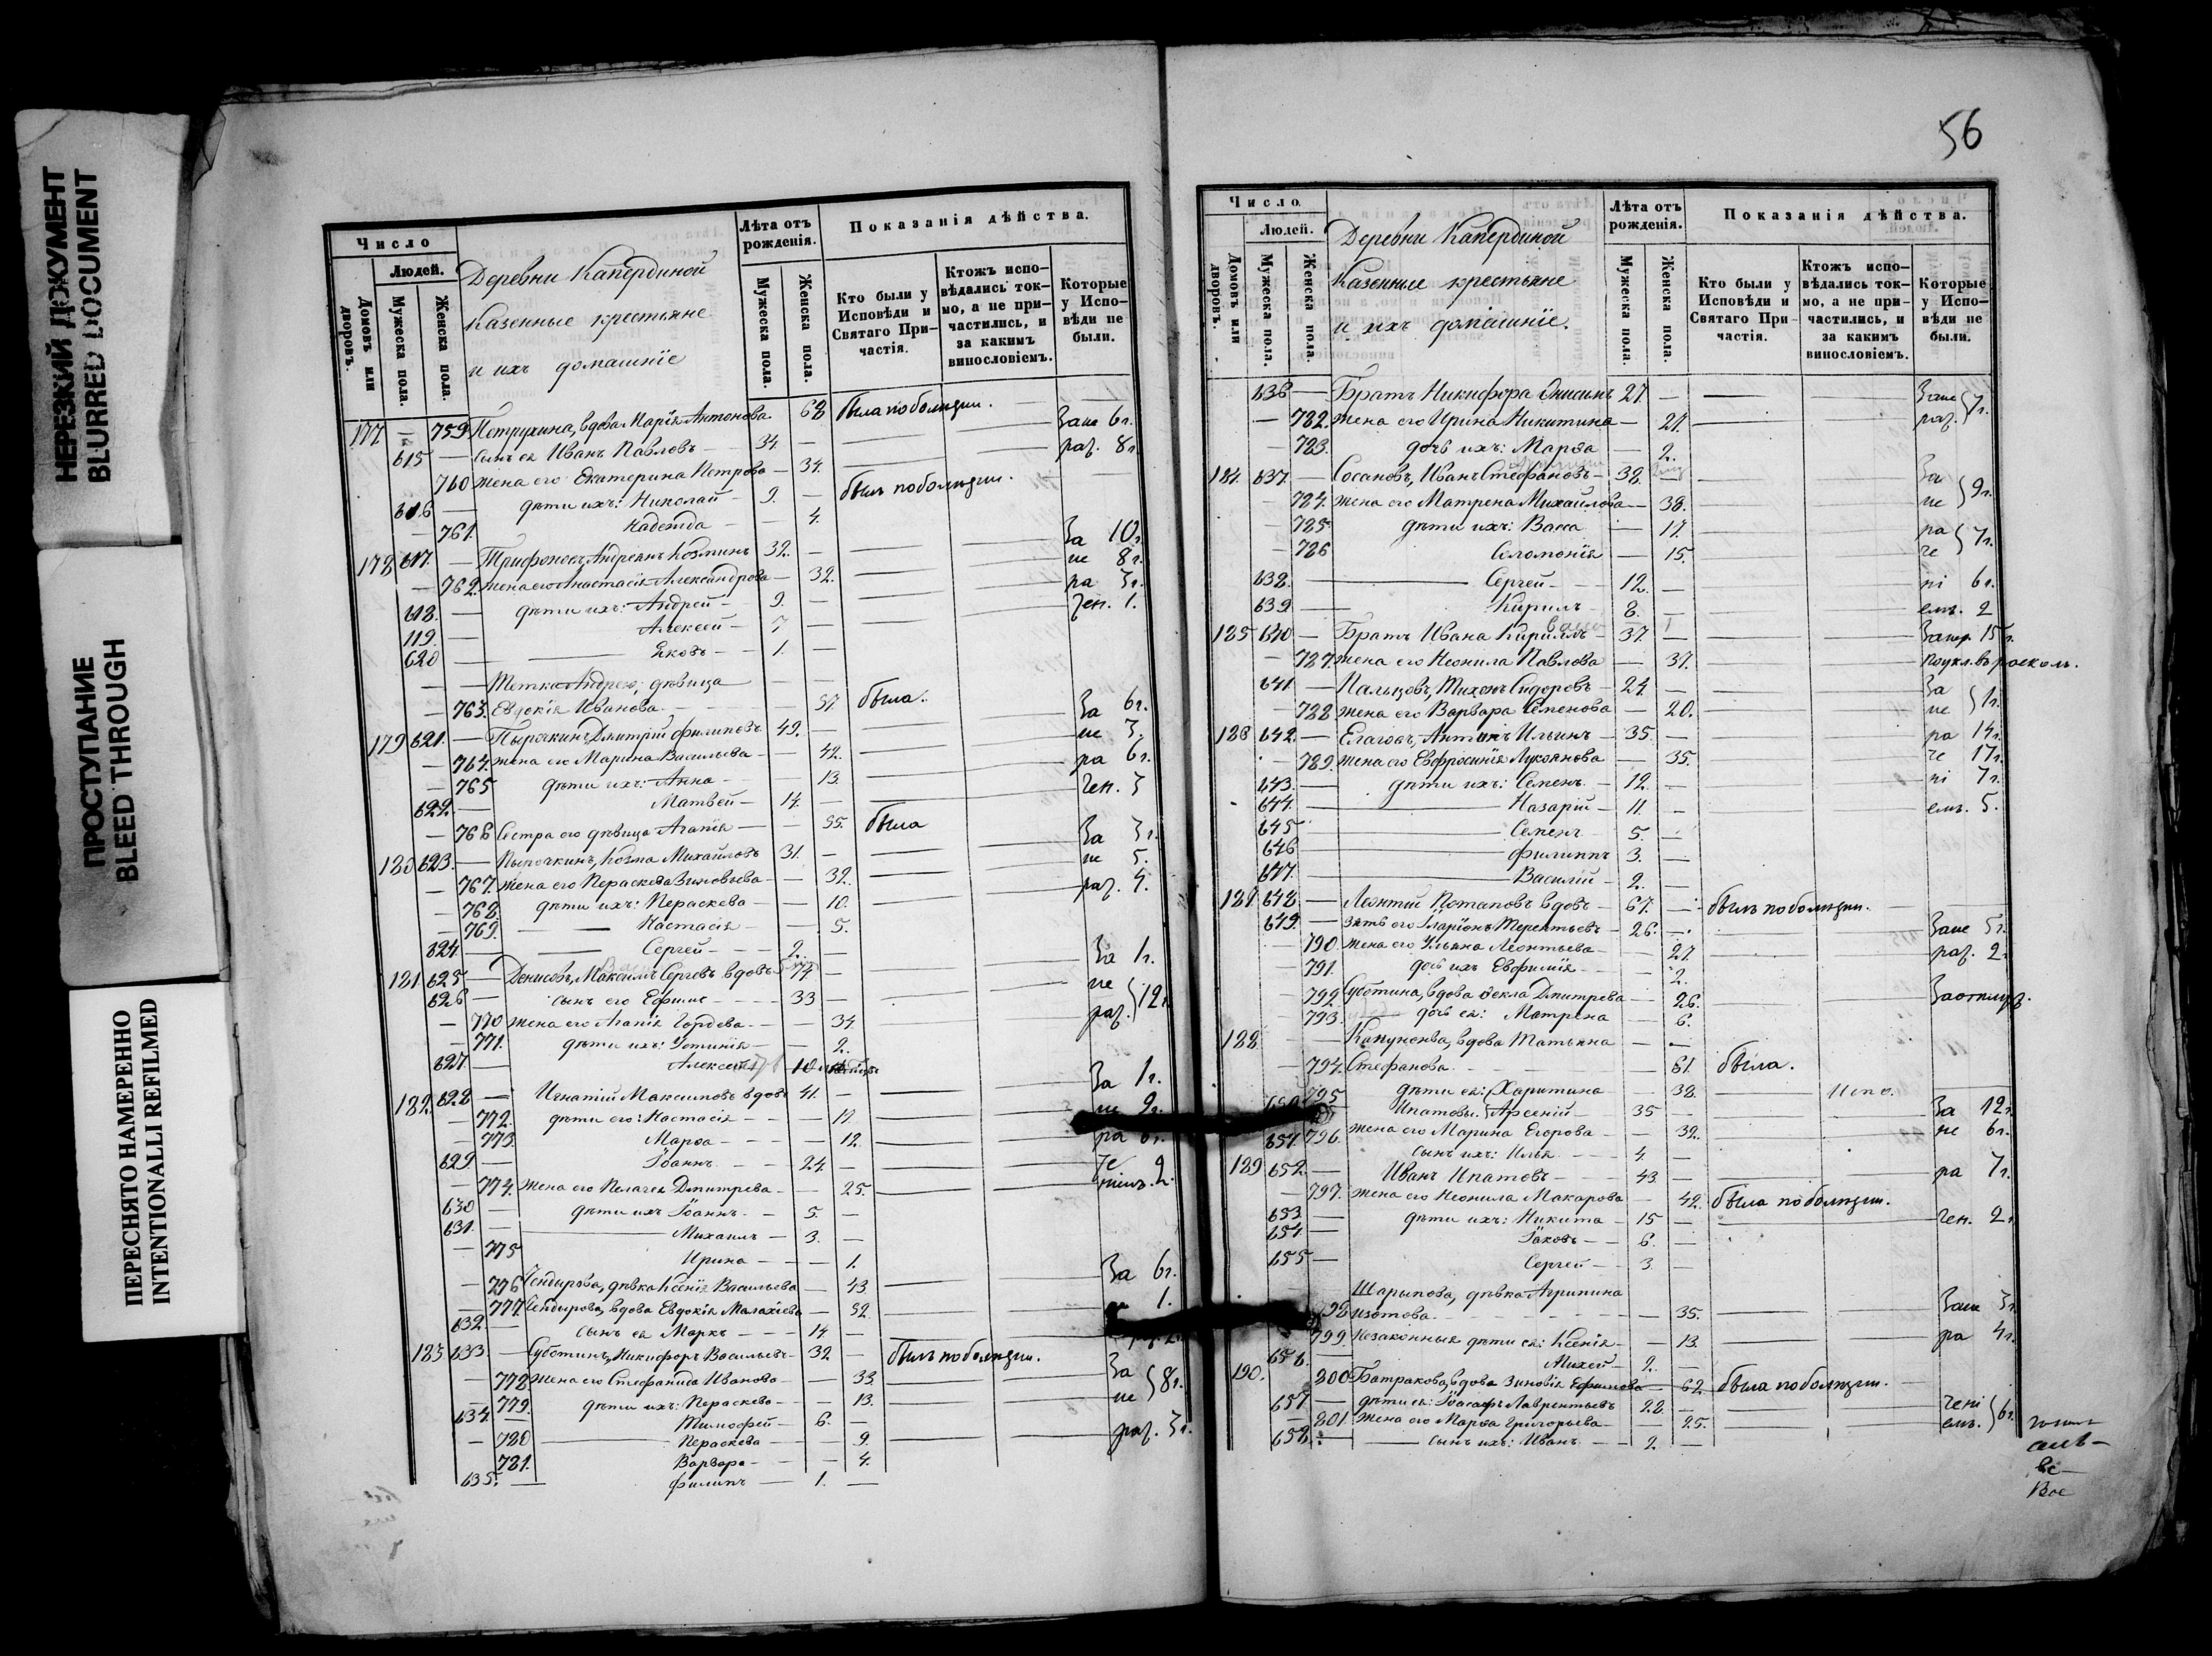 НЕРЕЗКИЙ ДОКУМЕНТ
BLURRED DOCUMENT
ПРОСТУПАНИЕ
BLEED THROUGH
ПЕРЕСНЯТО НАМЕРЕННО
INTENTIONALLI REFILMED
Число
Людей.
Домовъ или дворовъ.
Мужеска пола.
Женска пола.
Деревни Капердиной
Казенные крестьяне
и ихъ домашніе
Лѣта отъ рожденія.
Мужеска пола.
Женска пола.
Показанія дѣйства.
Кто были у Исповѣди и Святаго Причастія.
Ктожъ исповѣдались токмо, а не причастились, и за какимъ винословіемъ.
Которые у Исповѣди не были.
177 — 759 Петрухина, вдова Марія Антонова 68 была по болѣзни.
615 — Сынъ ея Иванъ Павловъ 34 — Зане 6 г.
760 жена его Екатерина Петрова — 34. раз. 8 г.
616 — дѣти ихъ: Николай 9. — былъ по болѣзни.
— 761. Надежда — 4.
178 617. — Трифоновъ, Андреянъ Козминъ 32. — За 10 г.
— 762. жена его Анастасія Александрова — 32. не 8 г.
618. — дѣти ихъ: Андрей 9. — ра 3 г.
119. — Алексей 7 — чен. 1.
620 — Яковъ 1. —
— — Тетка Андрею, дѣвица — —
— 763. Евдокія Иванова — 57 была.
179 621. — Пырочкинъ, Дмитрій Филиповъ 49. — За 6 г.
— 764. жена его Марина Васильева — 42. не 3.
— 765 дѣти ихъ: Анна — 13. ра 6 г.
622. — Матвей 14. — чен. 3
— 766 Сестра его дѣвица Агапія — 55. была
180 623. — Пырочкинъ, Козма Михайловъ 31. — За 3 г.
— 767. жена его Параскева Зиновьева — 32. не 5.
— 768. дѣти ихъ: Пераскева — 10. раз. 4.
— 769. Настасія — 5.
624. — Сергей 2. —
181 625 — Денисовъ, Максимъ Сергевъ вдовъ 74 — За 1 г.
626 — сынъ его Ефимъ 33 — не
— 770 жена его Агапія Гордева — 34 раз. 12 г.
— 771. дѣти ихъ: Устинія — 2.
627. — Алексей 10
182. 628 — Игнатій Максимовъ вдовъ 41. — За 1 г.
— 772. дѣти его: Настасія — 17. не 9 г.
— 773. Марѳа — 12. ра 6 г.
629 — Іоаннъ 24. —
— 774. жена его Пелагея Дмитрева — 25.
630 — дѣти ихъ Іоаннъ 5. —
631. — Михаилъ 3. —
— 775 Ирина — 1.
— 776 Чендырева, дѣвка Ксенія Васильева — 43. За 6 г.
— 777 Чендырова, вдова Евдокія Малахіева — 52. 1.
632. — сынъ ея Маркъ 14. —
183 633. — Суботинъ, Никифоръ Васильевъ 32 — былъ по болѣзни.
— 778. жена его Стефанида Иванова — 33. За
— 779. дѣти ихъ: Пераскева — 13. не 8 г.
634. — Тимофей 6. —
— 780 Пераскева — 9. раз. 3 г.
781. Варвара — 4.
635. — Филипъ 1. —
56
Число
Людей.
Домовъ или дворовъ.
Мужеска пола.
Женска пола.
Деревни Капердиной
Казенные крестьяне
и ихъ домашніе.
Лѣта отъ рожденія.
Мужеска пола.
Женска пола.
Показанія дѣйства.
Кто были у Исповѣди и Святаго Причастія.
Ктожъ исповѣдались токмо, а не причастились, и за какимъ винословіемъ.
Которые у Исповѣди не были.
636 — Братъ Никифора Онисимъ 27. — Зане
— 782. жена его Ирина Никитина — 27. раз. 7 г.
— 783. дочь ихъ: Марѳа — 2.
184. 637. — Сосановъ, Иванъ Стефановъ 38. — За
— 784. жена его Матрена Михайлова — 38. не 9 г.
— 785. дѣти ихъ: Васса — 17. ра
— 786 Соломонія — 15. че 7 г.
638. — Сергей 12. — ні 6 г.
639. — Кирилъ 8. — емъ. 2
185 640 — Братъ Ивана Кириллъ 37. — 15 г.
— 787. жена его Неонила Павлова — 37. по укл. въ расколъ.
641 — Пальцовъ, Тихонъ Сидоровъ 24. — За
— 788 жена его Варвара Семенова — 20. не 1 г.
186 642. — Елаговъ, Антонъ Ильинъ 35. — ра 14 г.
— 789. жена его Евфросинія Лукоянова — 35. че 17 г.
643. — дѣти ихъ: Семенъ 12. — ні 7 г.
644. — Назарій 11. — емъ. 5.
645 — Семенъ 5. —
646 — Филиппъ 3. —
647. — Василій 2. —
187 648. — Леонтій Потаповъ вдовъ 67. — былъ по болѣзни.
649. — зять его Іларіонъ Терентьевъ 26. — Зане 5 г.
— 790. жена его Ульяна Леонтьева — 27. раз. 2.
— 791. дочь ихъ Евфимія — 2.
— 792. Суботина, вдова Ѳекла Дмитрева — 26.
— 793. дочь ея: Матрена — 6.
188 — — Капунова, вдова Татьяна — —
— 794. Стефанова — 61. была.
795 дѣти ея: Харитина — 38. Испо.
Ипатовы. Арсеній 35 — За 12 г.
796. жена его Марина Егорова — 32. не 6 г.
651. сынъ ихъ: Илья 4. —
189 652. — Иванъ Ипатовъ 43 — ра 7 г.
— 797. жена его Неонила Макарова — 42. была по болѣзни.
653. — дѣти ихъ: Никита 15 — чен. 2 г.
654. — Іаковъ 6. —
655 — Сергей 3. —
Шарыпова, дѣвка Агрипина
798 Изотова — 35. Зане 3 г.
799. Незаконныя дѣти ея: Ксенія — 13. ра 4 г.
656. — Михей 2. —
190. 800 Батракова, вдова Зиновія Ефимова — 62. была по болѣзни.
657 — дѣти ея: Іоасафъ Лаврентьевъ 22. — чені
— 801. жена его Марѳа Григорьева — 25. емъ. 6 г.
658. — сынъ ихъ: Иванъ 2. —